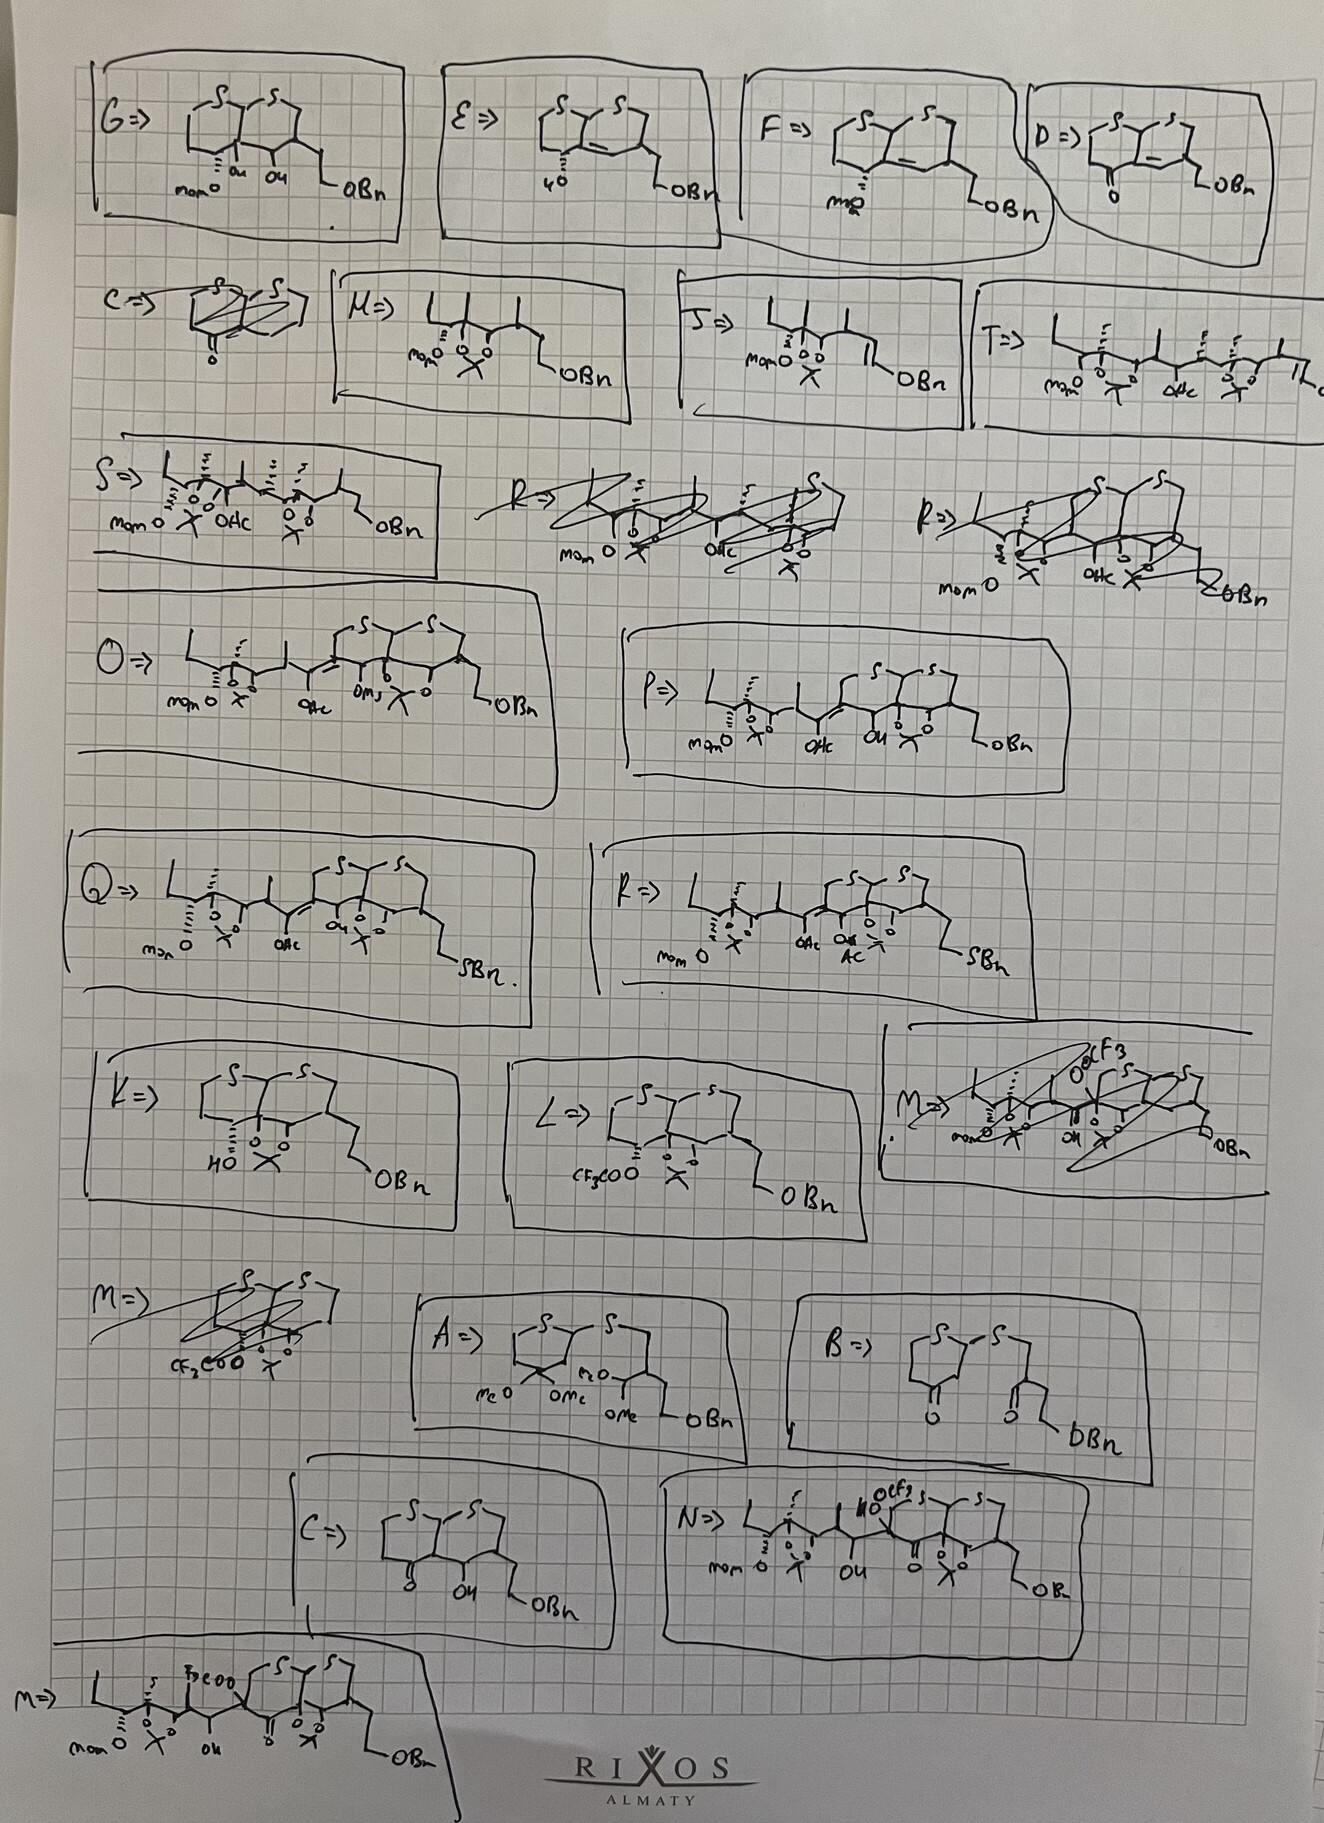 G => S S
momO OH OH OBn
E => S S
HO OBn
F => S S
OBn
D => S S
O OBn
C => S S
O
M =>
momO O O OBn
J =>
momO O O OBn
T =>
momO O O OAc O O
S =>
momO O O OAc O O OBn
R => S
momO O OAc O O
R => S S
momO O OAc O O OBn
O => S S
momO O O OAc OMs O O OBn
P => S S
momO O O OAc OH O O OBn
Q => S S
momO O O OAc OH O O SBn
R => S S
momO O O OAc Ac O O SBn
K => S S
HO O O OBn
L => S S
CF3COO O O OBn
M => S S
momO O O OH O O OBn
M => S S
CF3COO O O
A => S S
MeO OMe OMe OBn
B => S S
O O OBn
C => S S
O OH OBn
N => HO OCF3 S S
momO O O OH O O O
M => F3COO S S
momO O O OH O O O OBn
RIXOS
ALMATY